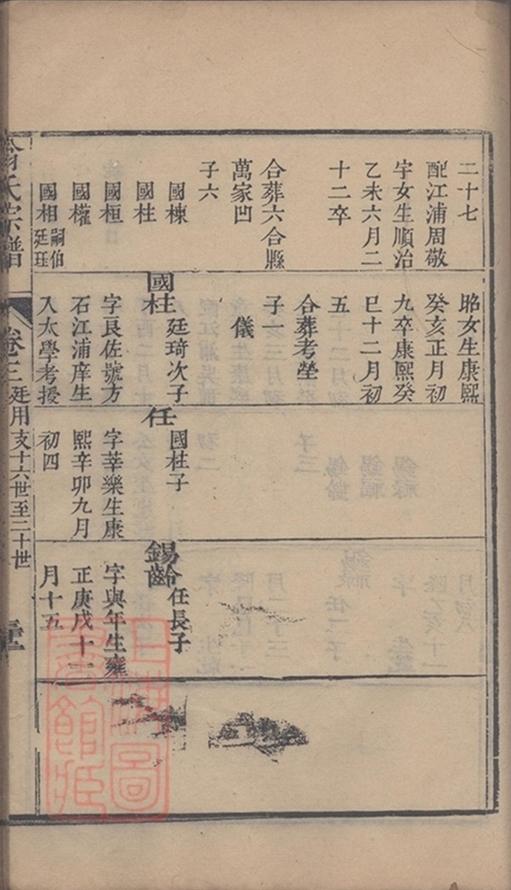 二十七
配江浦周敬
宇女生順治
乙未六月二
十二卒
合葬六合縣
萬家凹
子六
國棟
國柱
國桓
國權
國相嗣伯廷珏
昭女生康熙
癸亥正月初
九卒康熙癸
巳十二月初
五
合葬考塋
子一
儀
國柱
廷琦次子
字良佐號方
石江浦庠生
入太學考授
任
國柱子
字莘樂生康
熙辛卯九月
初四
錫齡
任長子
字與年生雍
正庚戌十一
月十五
氏宗譜
卷三廷用支十六世至二十世